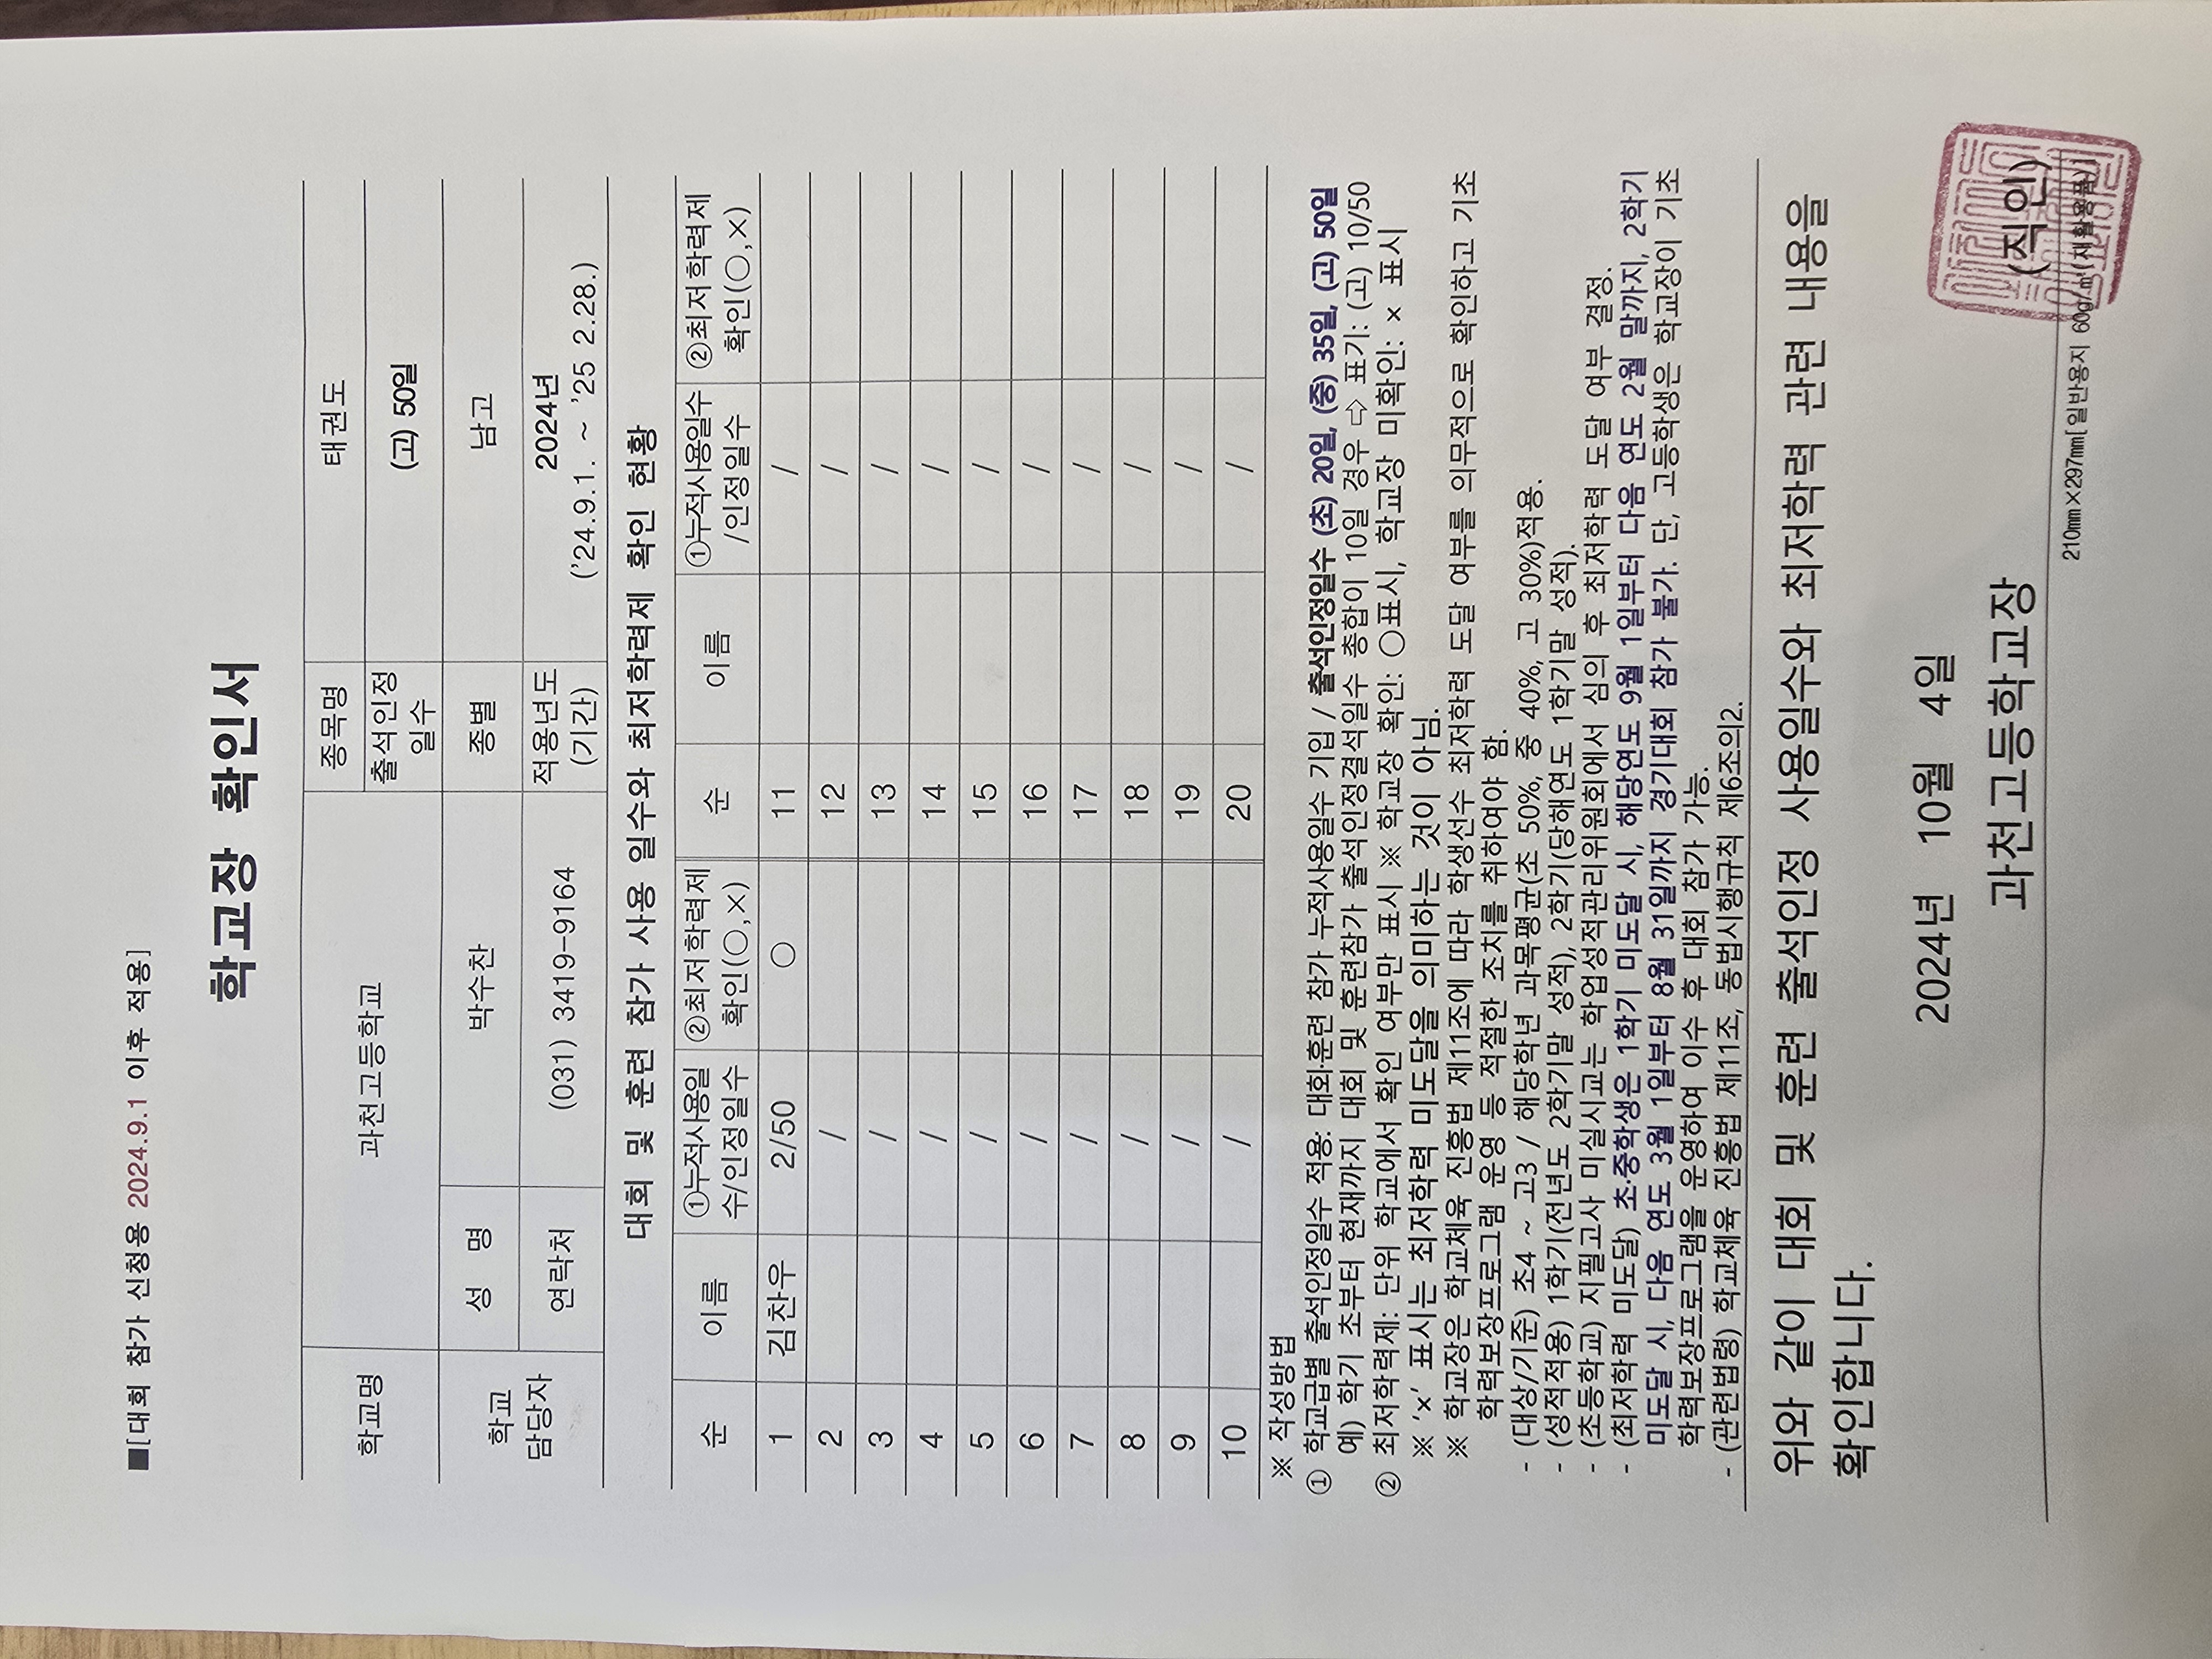 ■[대회 참가 신청용 2024.9.1 이후 적용]
학교장 확인서
학교명 과천고등학교 종목명 태권도
출석인정 일수 (고) 50일
학교 담당자 성 명 박수찬 종별 남고
연락처 (031) 3419-9164 적용년도 (기간) 2024년 ('24.9.1. ~ '25 2.28.)
대회 및 훈련 참가 사용 일수와 최저학력제 확인 현황
순 이름 ①누적사용일수/인정일수 ②최저학력제 확인(○,×) 순 이름 ①누적사용일수/인정일수 ②최저학력제 확인(○,×)
1 김찬우 2/50 ○ 11 /
2 / 12 /
3 / 13 /
4 / 14 /
5 / 15 /
6 / 16 /
7 / 17 /
8 / 18 /
9 / 19 /
10 / 20 /
※ 작성방법
① 학교급별 출석인정일수 적용: 대회·훈련 참가 누적사용일수 기입 / 출석인정일수 (초) 20일, (중) 35일, (고) 50일
예) 학기 초부터 현재까지 대회 및 훈련참가 출석인정결석일수 총합이 10일 경우 ⇨ 표기: (고) 10/50
② 최저학력제: 단위 학교에서 확인 여부만 표시 ※ 학교장 확인: ○표시, 학교장 미확인: × 표시
※ '×' 표시는 최저학력 미도달을 의미하는 것이 아님.
※ 학교장은 학교체육 진흥법 제11조에 따라 학생선수 최저학력 도달 여부를 의무적으로 확인하고 기초
학력보장프로그램 운영 등 적절한 조치를 취하여야 함.
- (대상/기준) 초4 ~ 고3 / 해당학년 과목평균(초 50%, 중 40%, 고 30%)적용.
- (성적적용) 1학기(전년도 2학기말 성적), 2학기(당해연도 1학기말 성적).
- (초등학교) 지필고사 미실시교는 학업성적관리위원회에서 심의 후 최저학력 도달 여부 결정.
- (최저학력 미도달) 초·중학생은 1학기 미도달 시, 해당연도 9월 1일부터 다음 연도 2월 말까지, 2학기
미도달 시, 다음 연도 3월 1일부터 8월 31일까지 경기대회 참가 불가. 단, 고등학생은 학교장이 기초
학력보장프로그램을 운영하여 이수 후 대회 참가 가능.
- (관련법령) 학교체육 진흥법 제11조, 동법시행규칙 제6조의2.
위와 같이 대회 및 훈련 출석인정 사용일수와 최저학력 관련 내용을
확인합니다.
2024년 10월 4일
과천고등학교장 (직인)
210㎜×297㎜[일반용지 60g/㎡(재활용품)]